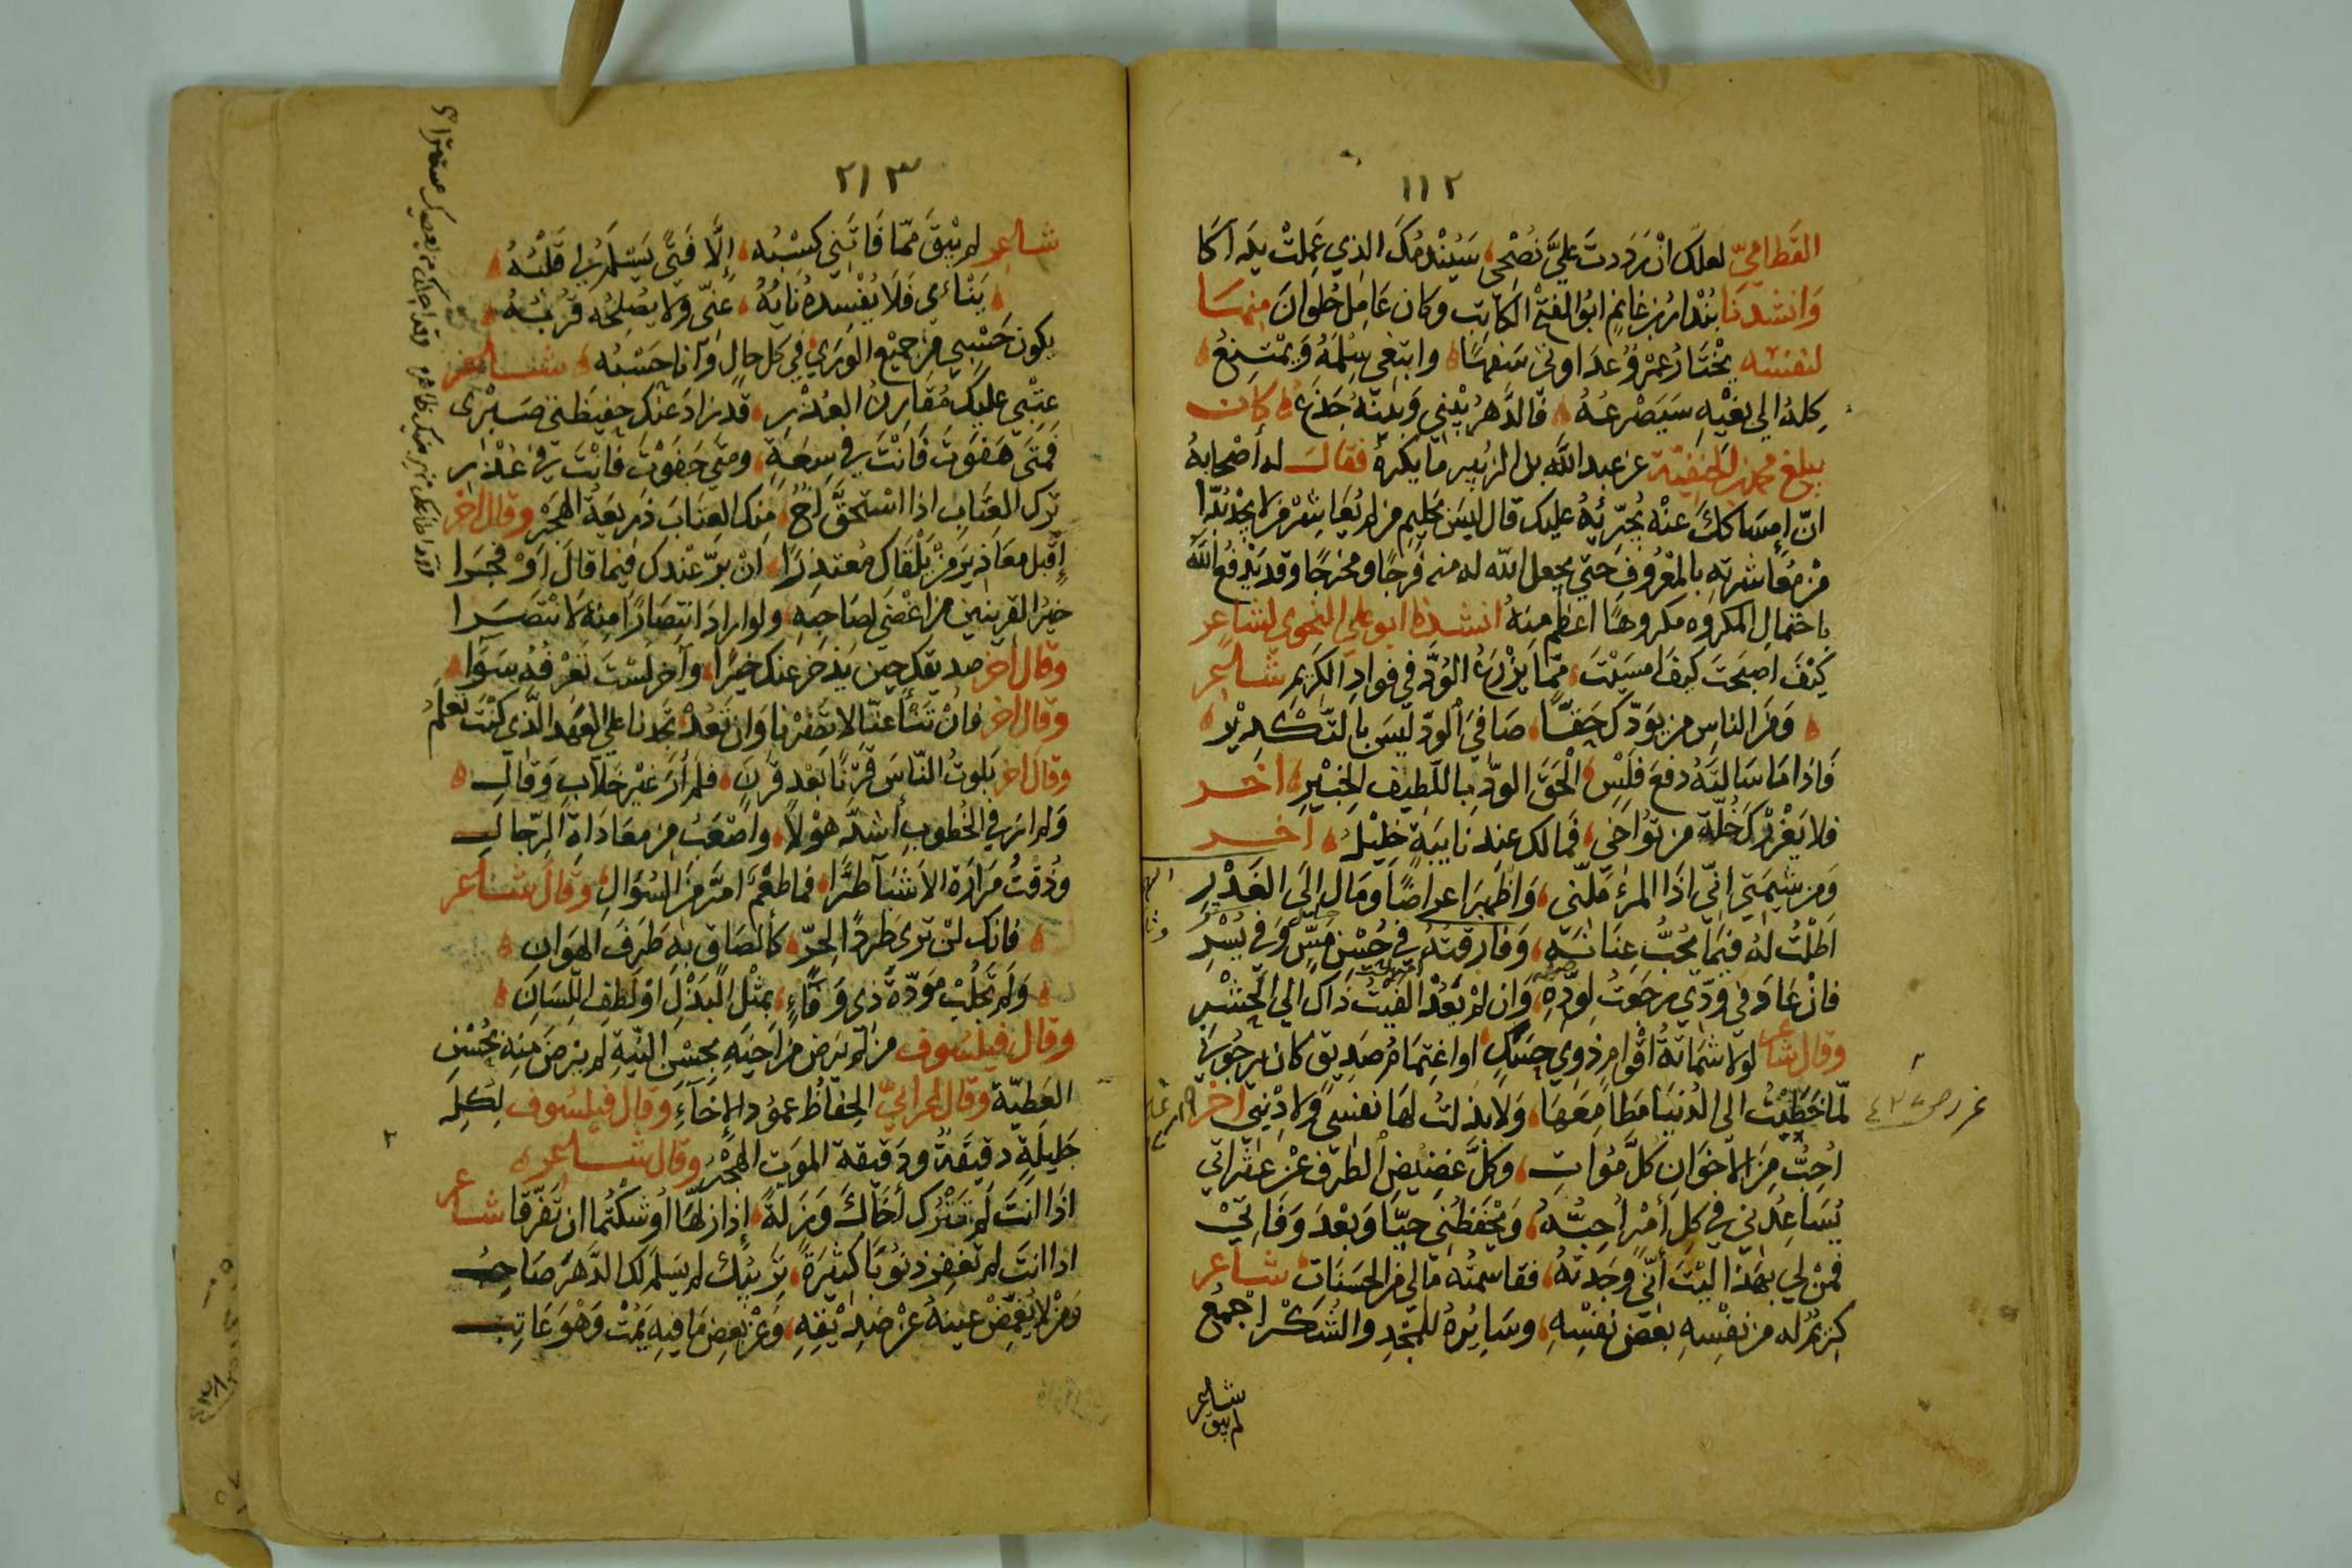 ١١٢
القطاميّ لعلك ان رددت عليّ نُصْحِي سَيُنْدمُكَ الذي عَمِلتْ يَداكا
وَانشدنَا بُنْدار بن غانم ابوُ الفتح الكاتِب وكان عَامِل حُلوانَ
لنفسه يخْتَارُ عَمْروُ عدَاوتي سَفهًا وابتغي سِلمَهُ وَيمْتنِعُ
كِلهُ الي بَغْيِه سَيَصْرعُهُ فالدَّهرُ بَيْنِي وَبَيْنَهُ جَذَعُ كان
يبلغ محمد بن الحَنفِيّة عن عبد الله بن الزبير ما يكرهُ فقال له أصْحابهُ
انّ إمسَاكَكَ عنْه يُجَرِّئهُ عليك قال ليسَ بحَليم من لم يُعَاشِرْ من لا يجدُ بُدًّا
منْ مُعَاشرتهِ بالمَعْرُوفِ حَتي يجعل الله له منه فَرجًا ومخرجًا وقد يَدْفعُ اللهُ
باحتمالِ المكروه مكروهًا اعظم مِنهُ انشدنا ابو علي النحوي لشاعر
كَيْفَ اصبَحتَ كيفَ امسَيْتَ ممّا يَزْرَعُ الوُدَّ في فوادِ الكَرِيمِ شاعر
وَمنَ الناسِ من يوَدّكَ حَقًّا صَافيَ الودّ ليسَ بالتّكْديْر
فَاذا مَا سَالتَهُ دفعَ فلسٍ الحَقَ الودَّ باللّطيف الخبيْرِ اخر
فلا يَغْرُرْكَ خُلّة من تؤاخي فمَالك عندَ نايبَةٍ خليْلُ آخر
وَمن شيمَتي انّي اذا المرءُ مَلّني وَاظهرَ اعراضًا ومَال الَى الغَدْرِ
اَطلْتُ لهُ فيمَا يُحبُّ عنَانَهُ وَفارقتُهُ في حُسْنِ مَسٍّ وَفي يُسْرِ
فانْ عَادَ في وُدّي رجَعتُ لِودّهِ وَان لم يَعُدْ الفيْتُ ذاك الي الحَشْرِ
وقال شاعر لولا شمَاتةُ اقْوامٍ ذوِي حسَدٍ او اغتِمَامُ صَدِيقٍ كان يرجُوني
لمّا خَطبْتُ الى الدُنيَا مَطَامِعَهَا وَلا بذلتُ لهَا نفسِي ولا دِيْني آخر
اُحِبُّ مِنَ الاخوَانِ كلَّ مُوَاتٍ وَكلَّ غضيْضِ الطرفِ عَنْ عَثراتي
يُسَاعِدُني في كلِ أمْرٍ اُحِبُّهُ وَيحْفظُني حيّا وَبعْدَ وَفَاتِيْ
فمَنْ لي بهذا ليْتَ أنّي وَجَدتهُ فقاسمتهُ مَالي من الحسَناتِ شاعر
كريمٌ له من نفْسِهِ بعضُ نفْسِهِ وسَايرُهُ للمجدِ والشكْر اجمَعُ
شاعر
لم يبق
٢١٣
شاعر لم يبْقَ ممّا فَاتَنِي كسْبُه إلّا فَتًى يَسْلَمُ لي قَلْبُهُ
يَنْاءى فَلا يُفْسِدهُ نَايهُ عنّى ولا يصْلحُه قُربُهُ
يكون حَسْبِي من جميْع الوَرى في كل حالٍ وَانا حَسْبُه شاعر
عتْبي عليك مُقارِنُ العُذْرِ قد زادَ عَنْك حفيظتي صَبْرى
فمتى هَفَوتَ فانْتَ في سِعَةٍ ومتي جَفوْتَ فانْتَ في عُذْرِ
ترك العتَابِ اذا اسْتحقَّ اخٌ منك العتَابَ ذرِيعَة الهَجْرِ وقال اخر
إقبل معَاذيرَ منْ يَلْقاك مُعتَذرًا انْ بَرَّ عنْدك فيما قال أوْ فجَرَا
خيرُ القرينين من اغْضَى لصَاحبهِ ولو اراد انتِصَارًا مِنهُ لانتصَرَا
وقال اخر صديقك حين يَذخر عنك خيرًا وآخر لسْتَ تعْرفُهُ سَوَآء
وقال اخر فانْ تَنْأَ عنّا لا تضِرْنا وَان تَعُدْ تجدنا علي العَهد الّذي كنْتَ تَعلمُ
وقال اخر بَلوتُ النّاسَ قرْنًا بَعْد قرنٍ فلم أرَ غيْر خلّابٍ وَقالِ
وَلم ارَ في الخُطوبِ أشدّ هوْلًا واصْعَبَ من معَادَاة الرّجالِ
وذُقتُ مَرارَة الاشيَآ طُرًّا فما طعْمٌ امَرّ منَ السُوَالِ وقال شاعر
فانك لنْ ترى طَردًا لِحُرٍّ كالصَاقٍ به طَرَفَ الهوَانِ
وَلم تَجلُبْ موَدّةَ ذي وَفَآءٍ بمثْل البَذْلِ او لطفِ اللّسَانِ
وقال فيلسُوف من لم يَرضَ من اَخيْهِ بحسْن النّيةِ لم يرْضَ منهُ بحُسْنِ
العَطيّة وقال اعرابيّ الحِفاظُ عمُود الإخَآءِ وقال فيلسُوف لِكلِ
جَليلةٍ دقيقَةٌ ودَقيقَة الموَتِ الهَجْرُ وقال شاعر
اذا انتَ لم تترُك أخَاكَ وَزلةً إذا زلّها اَوْشَكْتُما ان تَفَرّقا شاعر
اذا انتَ لم تَغفِر ذنوُبًا كثيْرَةً تَرِيْبُك لم يَسْلم لك الدَّهرَ صَاحِبُ
وَمنْ لا يُغمّضْ عينهُ عنْ صَديْقِهِ وَعنْ بَعضِ مَا فيهِ يَمُتْ وَهْوَ عَاتِبُ